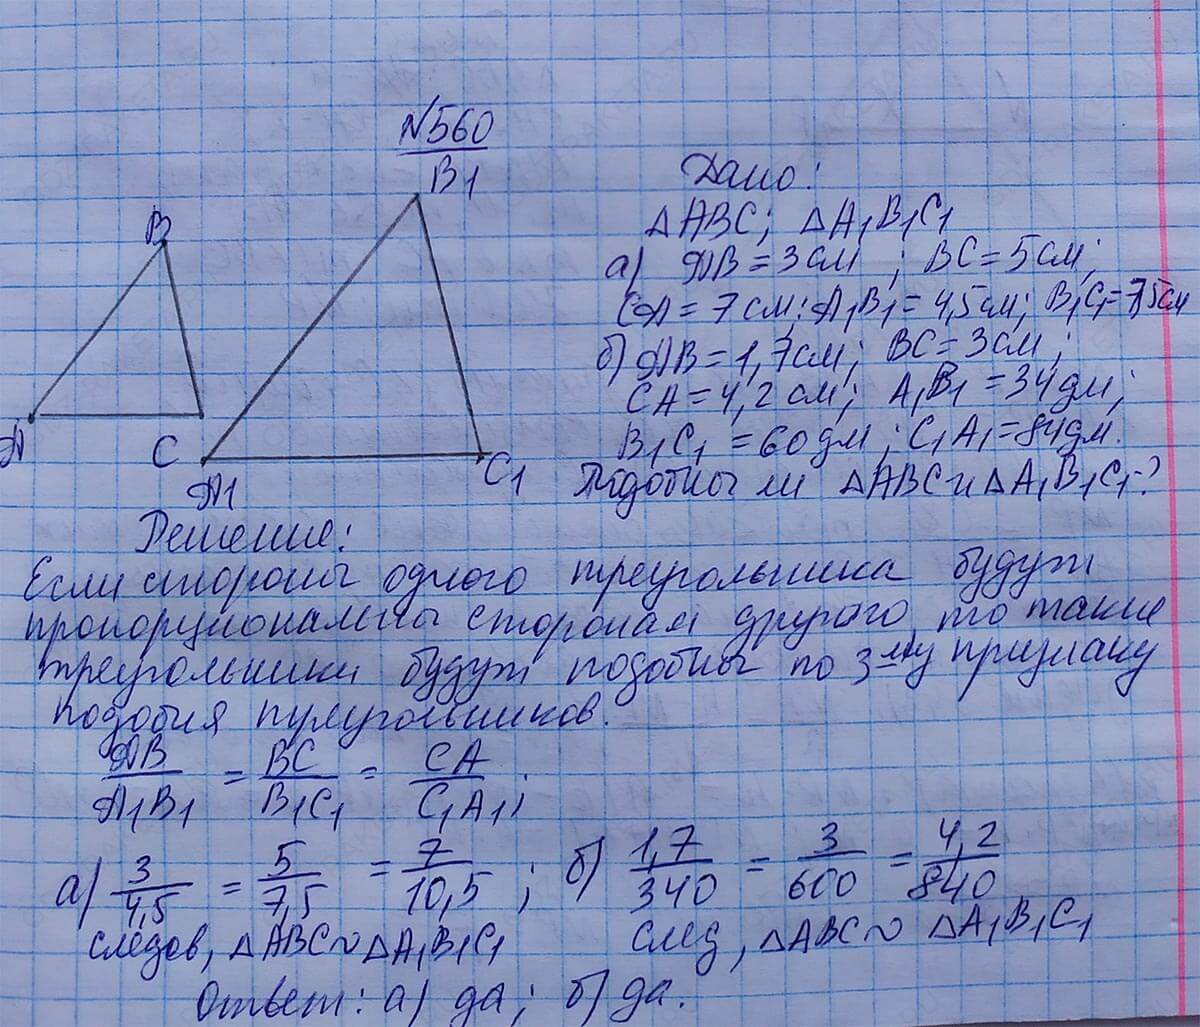 №560
B
A
C
B1
A1
C1
Дано:
△ABC; △A₁B₁C₁
а) AB = 3 см ; BC = 5 см;
CA = 7 см; A₁B₁ = 4,5 см; B₁C₁ = 7,5 см
б) AB = 1,7 см; BC = 3 см;
CA = 4,2 см; A₁B₁ = 34 дм;
B₁C₁ = 60 дм; C₁A₁ = 84 дм.
Подобны ли △ABC и △A₁B₁C₁-?
Решение:
Если стороны одного треугольника будут
пропорциональны сторонам другого, то такие
треугольники будут подобны по 3-му признаку
подобия
AB/A₁B₁ = BC/B₁C₁ = CA/C₁A₁;
а) 3/4,5 = 5/7,5 = 7/10,5 ; б) 1,7/340 = 3/600 = 4,2/840
следов, △ABC ~ △A₁B₁C₁ след, △ABC ~ △A₁B₁C₁
Ответ: а) да; б) да.